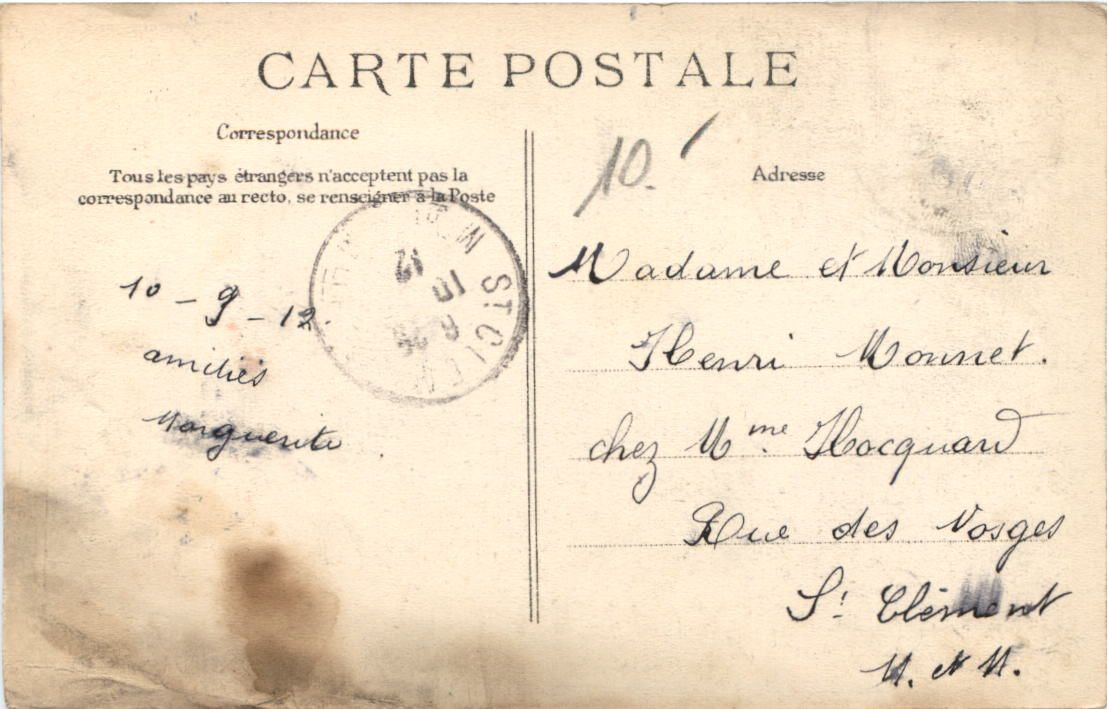 CARTE POSTALE
Correspondance
Tous les pays étrangers n'acceptent pas la
correspondance au recto, se renseigner à la Poste
10 - 9 - 12
amitiés
Marguerite
10.
Adresse
Madame et Monsieur
Henri Monnet.
chez Mme Hocquard
Rue des Vosges
St Clément
M. et M.
ST CLEM
10
12